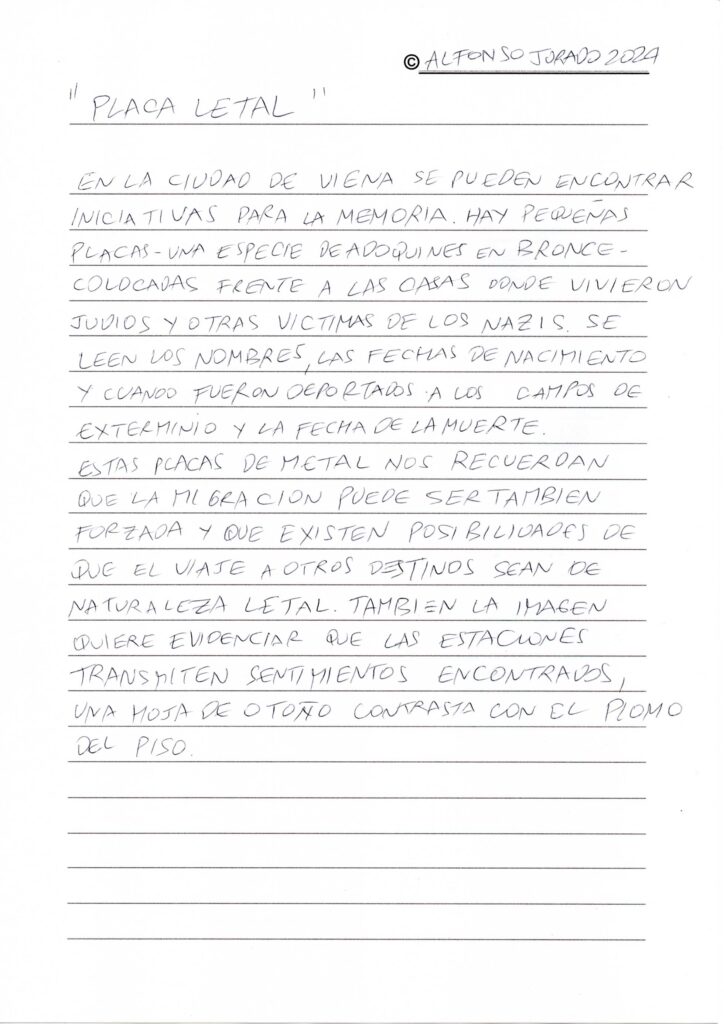 © ALFONSO JURADO 2024
"PLACA LETAL"
EN LA CIUDAD DE VIENA SE PUEDEN ENCONTRAR
INICIATIVAS PARA LA MEMORIA. HAY PEQUEÑAS
PLACAS - UNA ESPECIE DE ADOQUINES EN BRONCE -
COLOCADAS FRENTE A LAS CASAS DONDE VIVIERON
JUDIOS Y OTRAS VICTIMAS DE LOS NAZIS. SE
LEEN LOS NOMBRES, LAS FECHAS DE NACIMIENTO
Y CUANDO FUERON DEPORTADOS A LOS CAMPOS DE
EXTERMINIO Y LA FECHA DE LA MUERTE.
ESTAS PLACAS DE METAL NOS RECUERDAN
QUE LA MIGRACION PUEDE SER TAMBIEN
FORZADA Y QUE EXISTEN POSIBILIDADES DE
QUE EL VIAJE A OTROS DESTINOS SEAN DE
NATURALEZA LETAL. TAMBIEN LA IMAGEN
QUIERE EVIDENCIAR QUE LAS ESTACIONES
TRANSMITEN SENTIMIENTOS ENCONTRADOS,
UNA HOJA DE OTOÑO CONTRASTA CON EL PLOMO
DEL PISO.